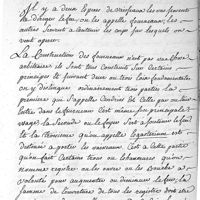 Il y a deux lignes de vaisseaux les uns servent
a diriger le feu on les appelle fourneaux; les
autres servent a contenir les corps sur lesquels on
veut operer.
La Construction des fourneaux n'est pas une chose
arbitraire ils sont tous construits sur Certains
principes et suivant deux ou trois loix fondamentales
on y distingue ordinairement trois parties la
premiere qui s'appelle Cendrier et Celle par ou l'air
entre dans le fourneau C'est meme son principal
usage la Seconde ou le foyer sert a soutenir le feu
et la troisieme qu'on appelle laboratoire est
destinée a porter les vaisseaux. C'est a cette partie
qu'on fait Certains trous ou echancrures qu'on
nomme registre on les ouvre on les bouche a
volonté pour augmenter ou diminuer le feu, la
somme de l'ouverture de tous les registres doit etre